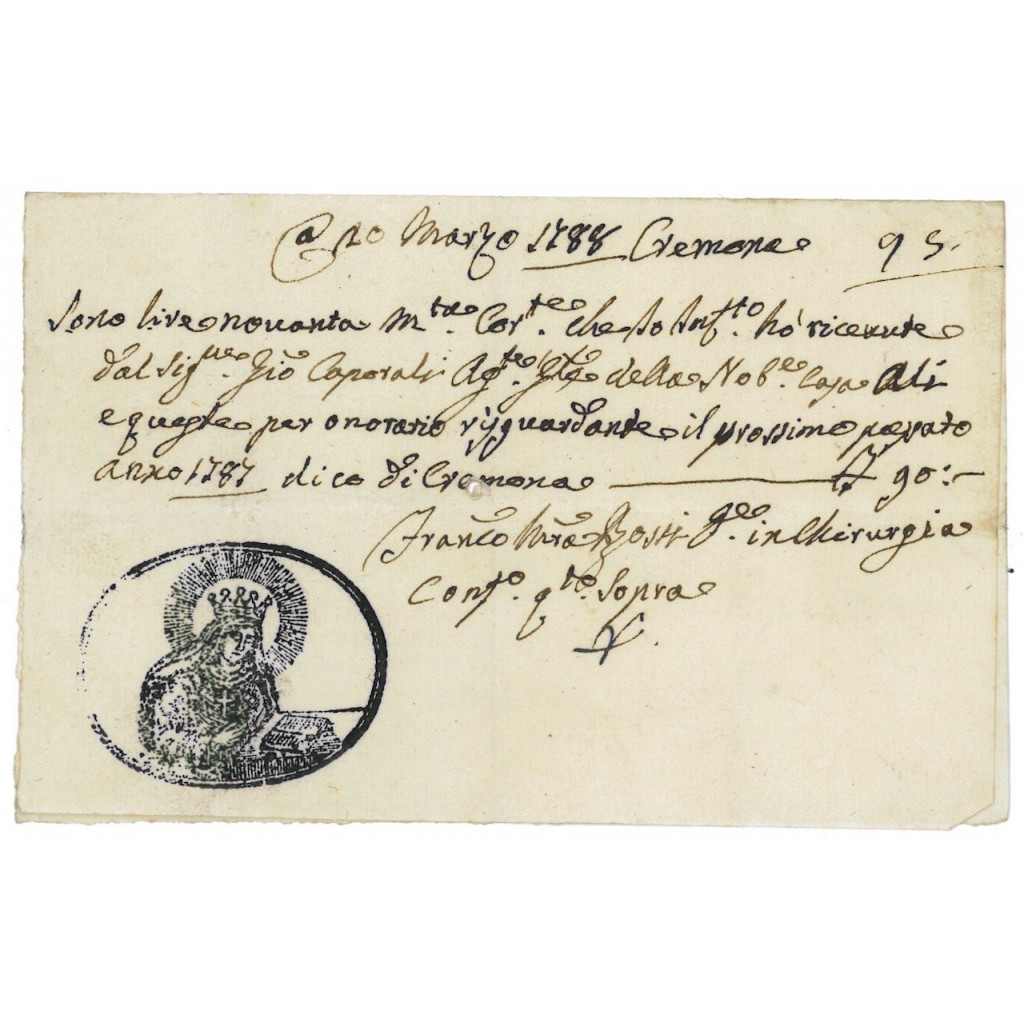 a 10 Marzo 1788 Cremona 95.
Sono lire novanta m.ta Cor.te che Io Inf.to hò ricevute
dal Sig.re Gio Caporali Ag.te della Nob.e Casa Ali
e queste per onorario risguardante il prossimo passato
anno 1787 dico di Cremona 90:-
Franco Bossi in Chirurgia
Conf.o q.to Sopra